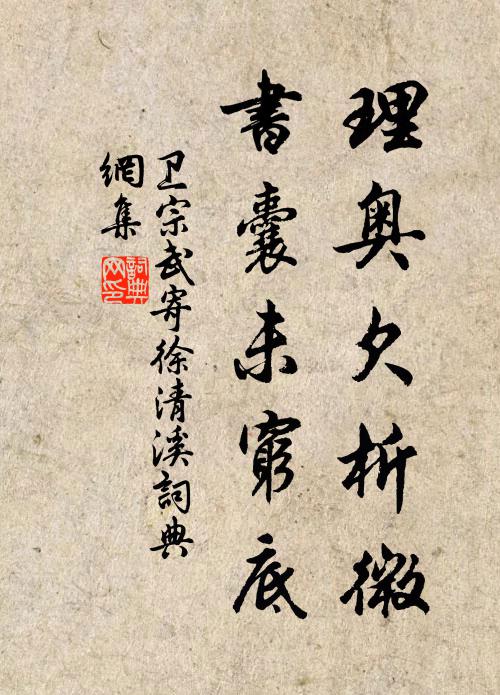 理奥欠析微
書囊未窮底
卫宗武寄徐清溪詞典
網集
詞典
网印